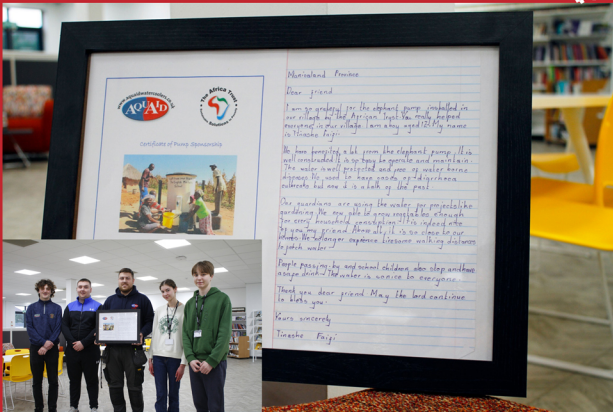 www.aquaidwatercoolers.co.uk
AQUAID
The Africa Trust
Certificate of Pump Sponsorship
Manicaland Province
Dear friend
I am so grateful for the elephant pump installed in
our village by the African Trust. You really helped
everyone in our village. I am a boy aged 12. My name
is Tinashe
We have benefited a lot from the elephant pump. It is
well constructed. It is so easy to operate and maintain.
The water is well protected and free of water borne
diseases. We used to have cases of diarrhoea
outbreaks but now it is a talk of the past.
Our guardians are using the water for projects like
gardening. We now able to grow vegetables enough
for every household consumption. It is indeed
by you my friend. Above all, it is so close to our
homes. We no longer experience tiresome walking distances
to fetch water.
People passing-by and school children also stop and have
a safe drink. The water is to everyone.
Thank you dear friend. May the lord continue
to bless you.
Yours sincerely
Tinashe